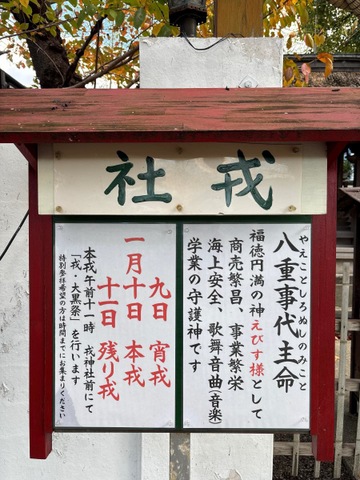 戎社
やえことしろぬしのみこと
八重事代主命
福徳円満の神えびす様として
商売繁昌、事業繁栄
海上安全、歌舞音曲(音楽)
学業の守護神です
九日 宵戎
一月十日 本戎
十一日 残り戎
本戎午前十一時 戎神社前にて
「戎・大黒祭」を行います
特別参拝希望の方は時間までにお集まりください